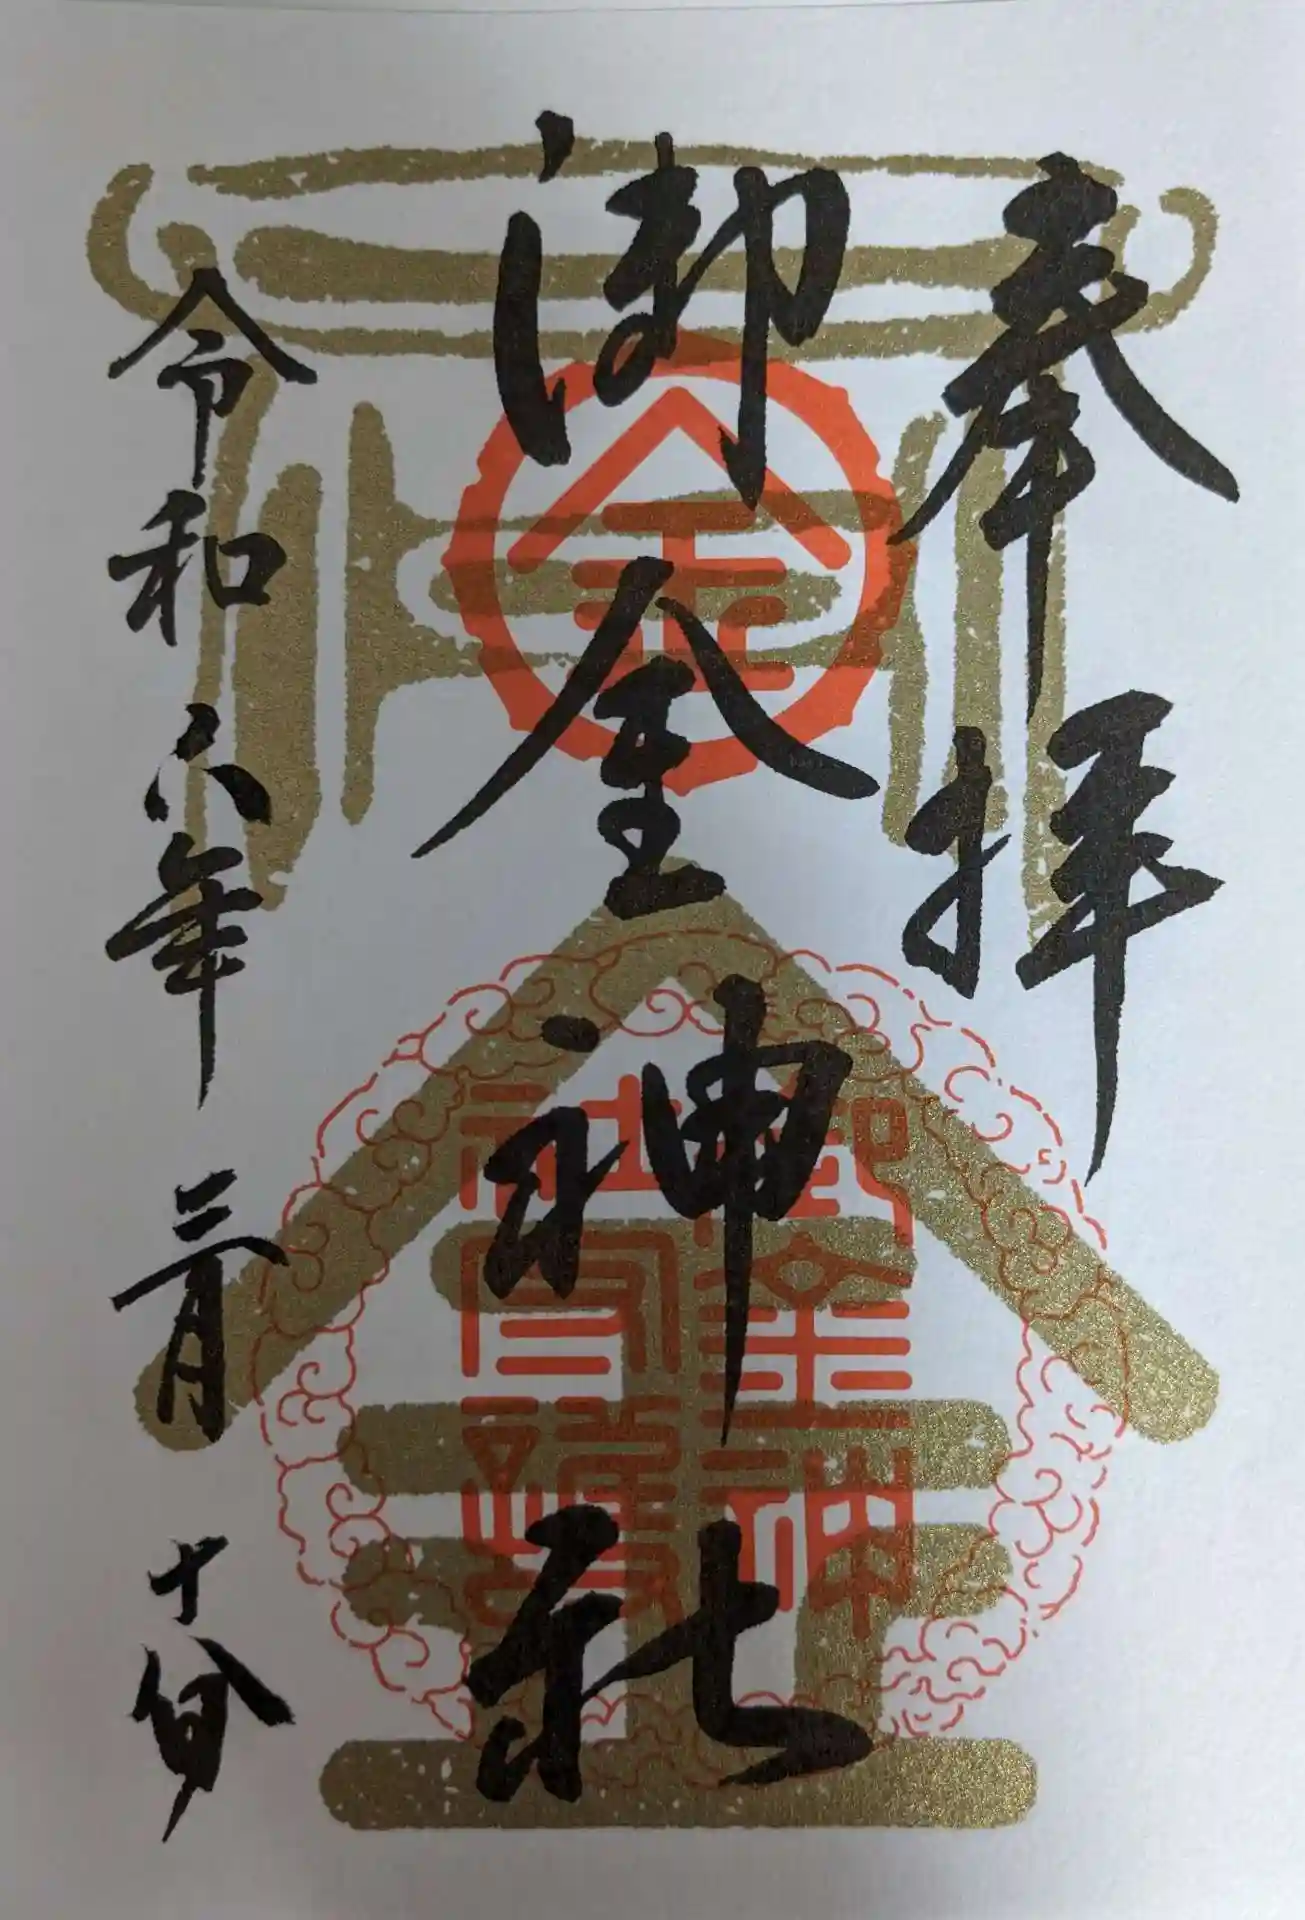 奉拝
御金神社
令和六年三月十八日
金
御金神
社